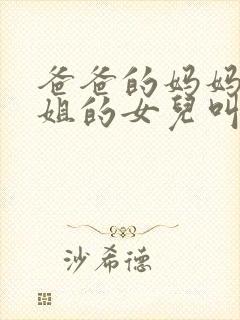 爸爸的妈妈
姐的女兒叫
沙希德